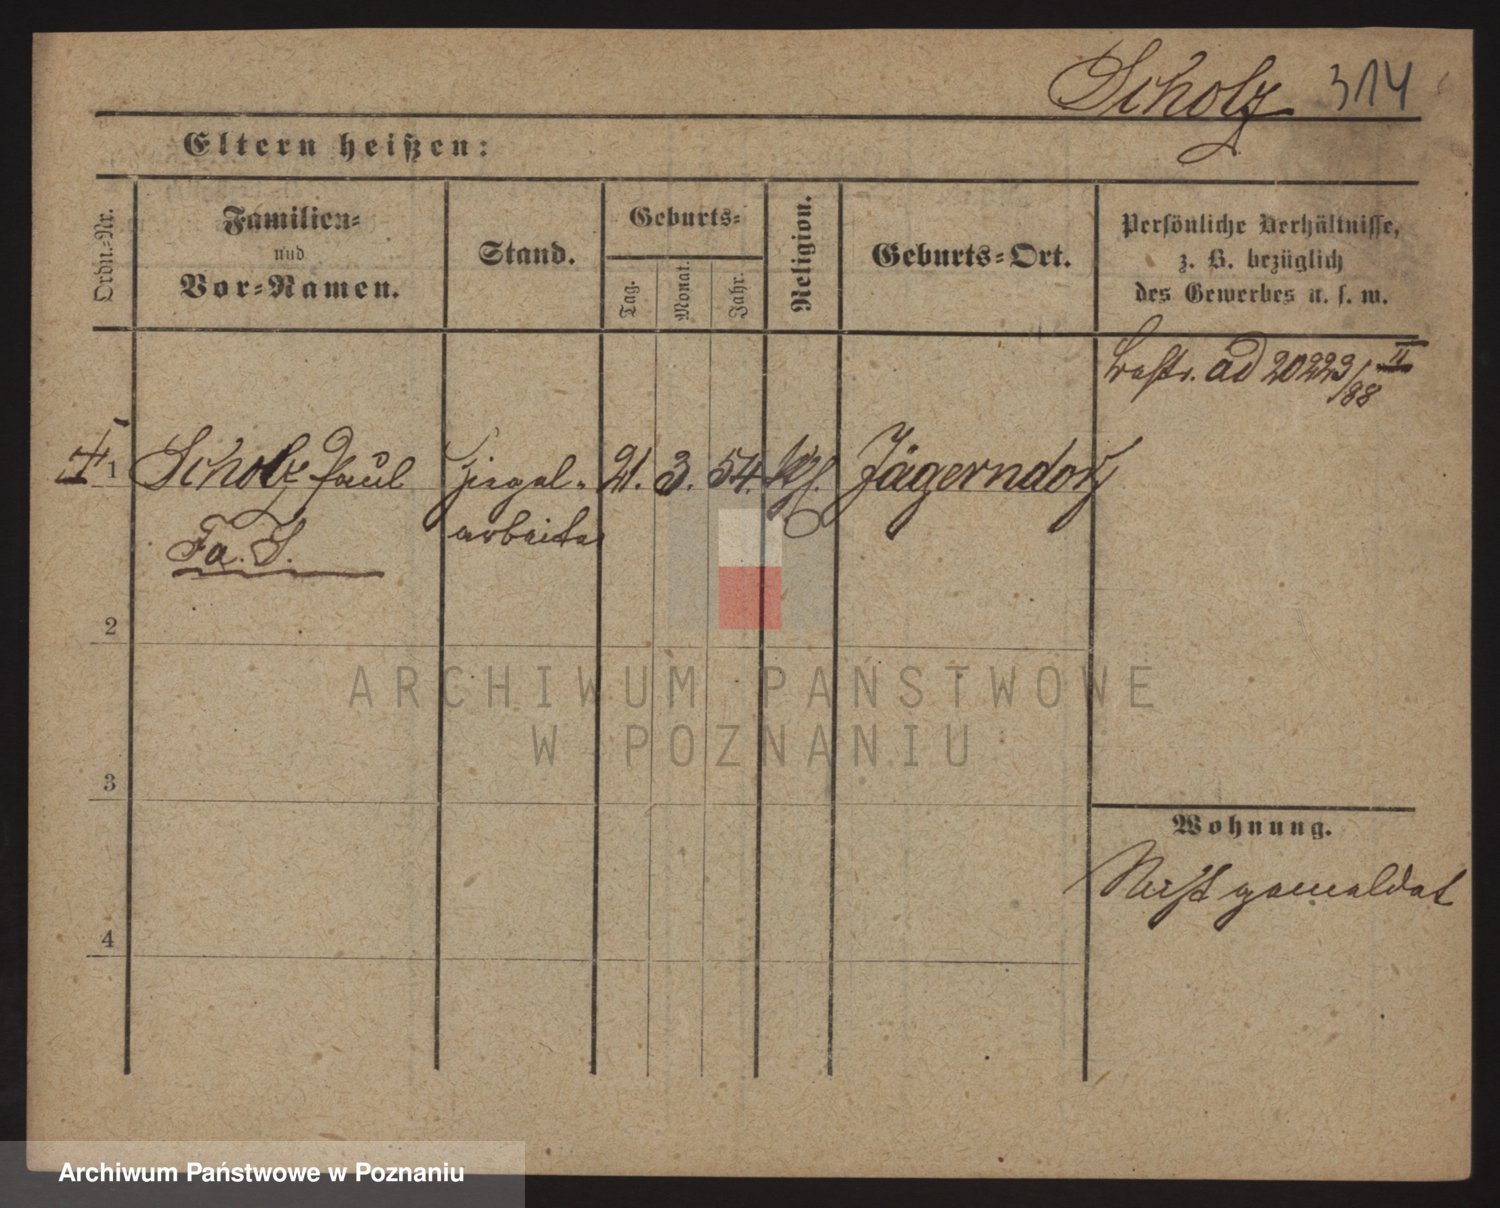 Scholz 314
Eltern heißen:
Ordn.-Nr.
Familien-
und
Vor-Namen.
Stand.
Geburts-
Tag.
Monat.
Jahr.
Religion.
Geburts-Ort.
Persönliche Verhältnisse,
z. B. bezüglich
des Gewerbes u. s. w.
ad 20223/88 II
1 Scholz Paul Ziegel- 21. 3. 54. Jägerndorf
Fa. S. arbeiter
2
ARCHIWUM PAŃSTWOWE
W POZNANIU
3
Wohnung.
Nicht gemeldet
4
Archiwum Państwowe w Poznaniu